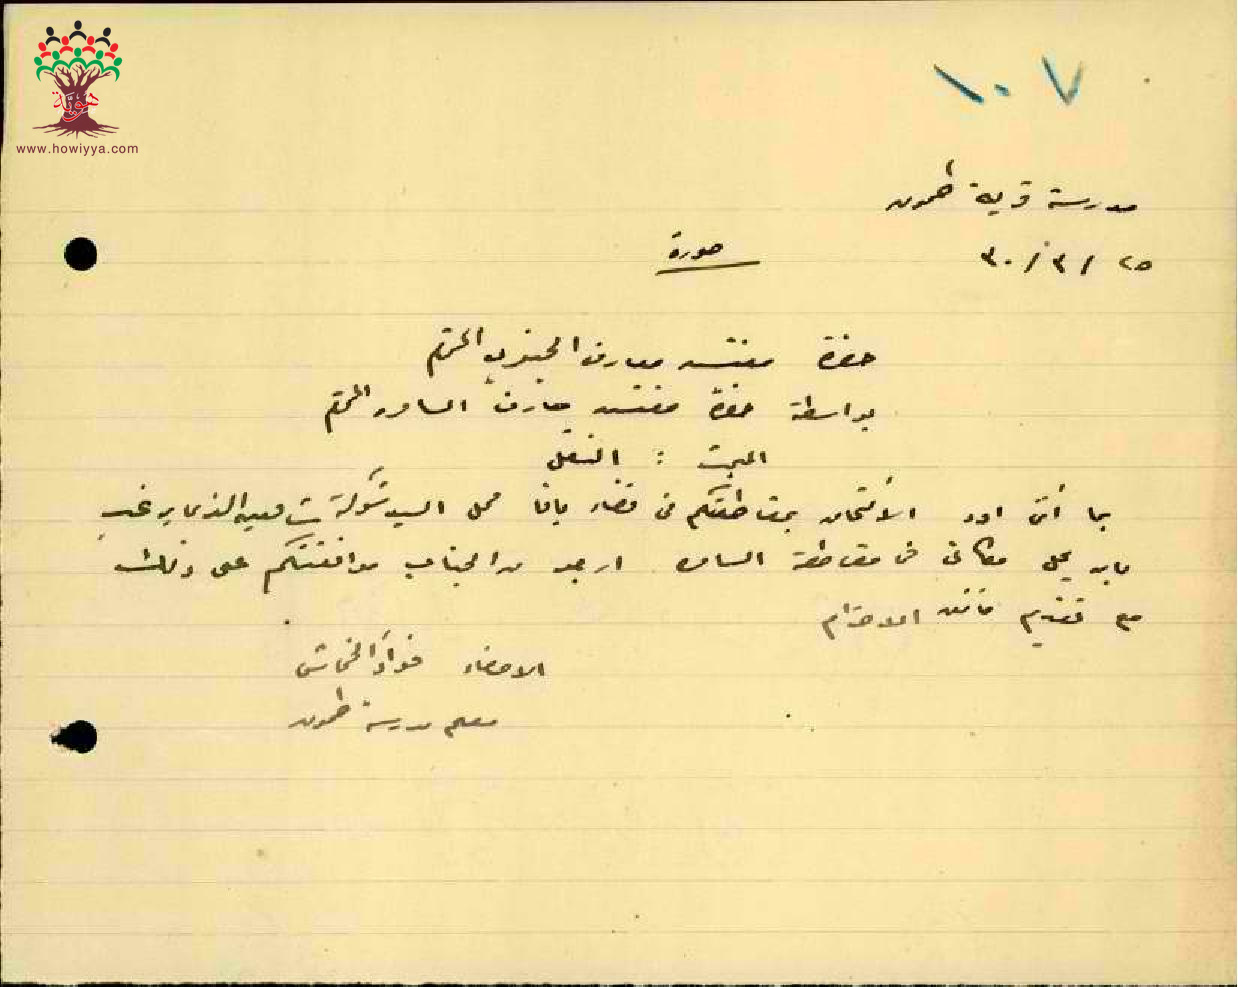 هوية
www.howiyya.com
١٠٧
مدرسة قرية طمون
٢٥ / ٣ / ٣٠
صورة
حضرة مفتش معارف الجنوب المحترم
بواسطة حضرة مفتش معارف السامرة المحترم
المبحث : النقل
بما أنني اود الالتحاق بمقاطعتكم في قضاء يافا محل السيد شوكة الذي يرغب
بان يحل مكاني في مقاطعة السامرة ارجو من الجناب موافقتكم على ذلك
مع تقديم فائق الاحترام
الامضاء فؤاد الخماش
معلم مدرسة طمون